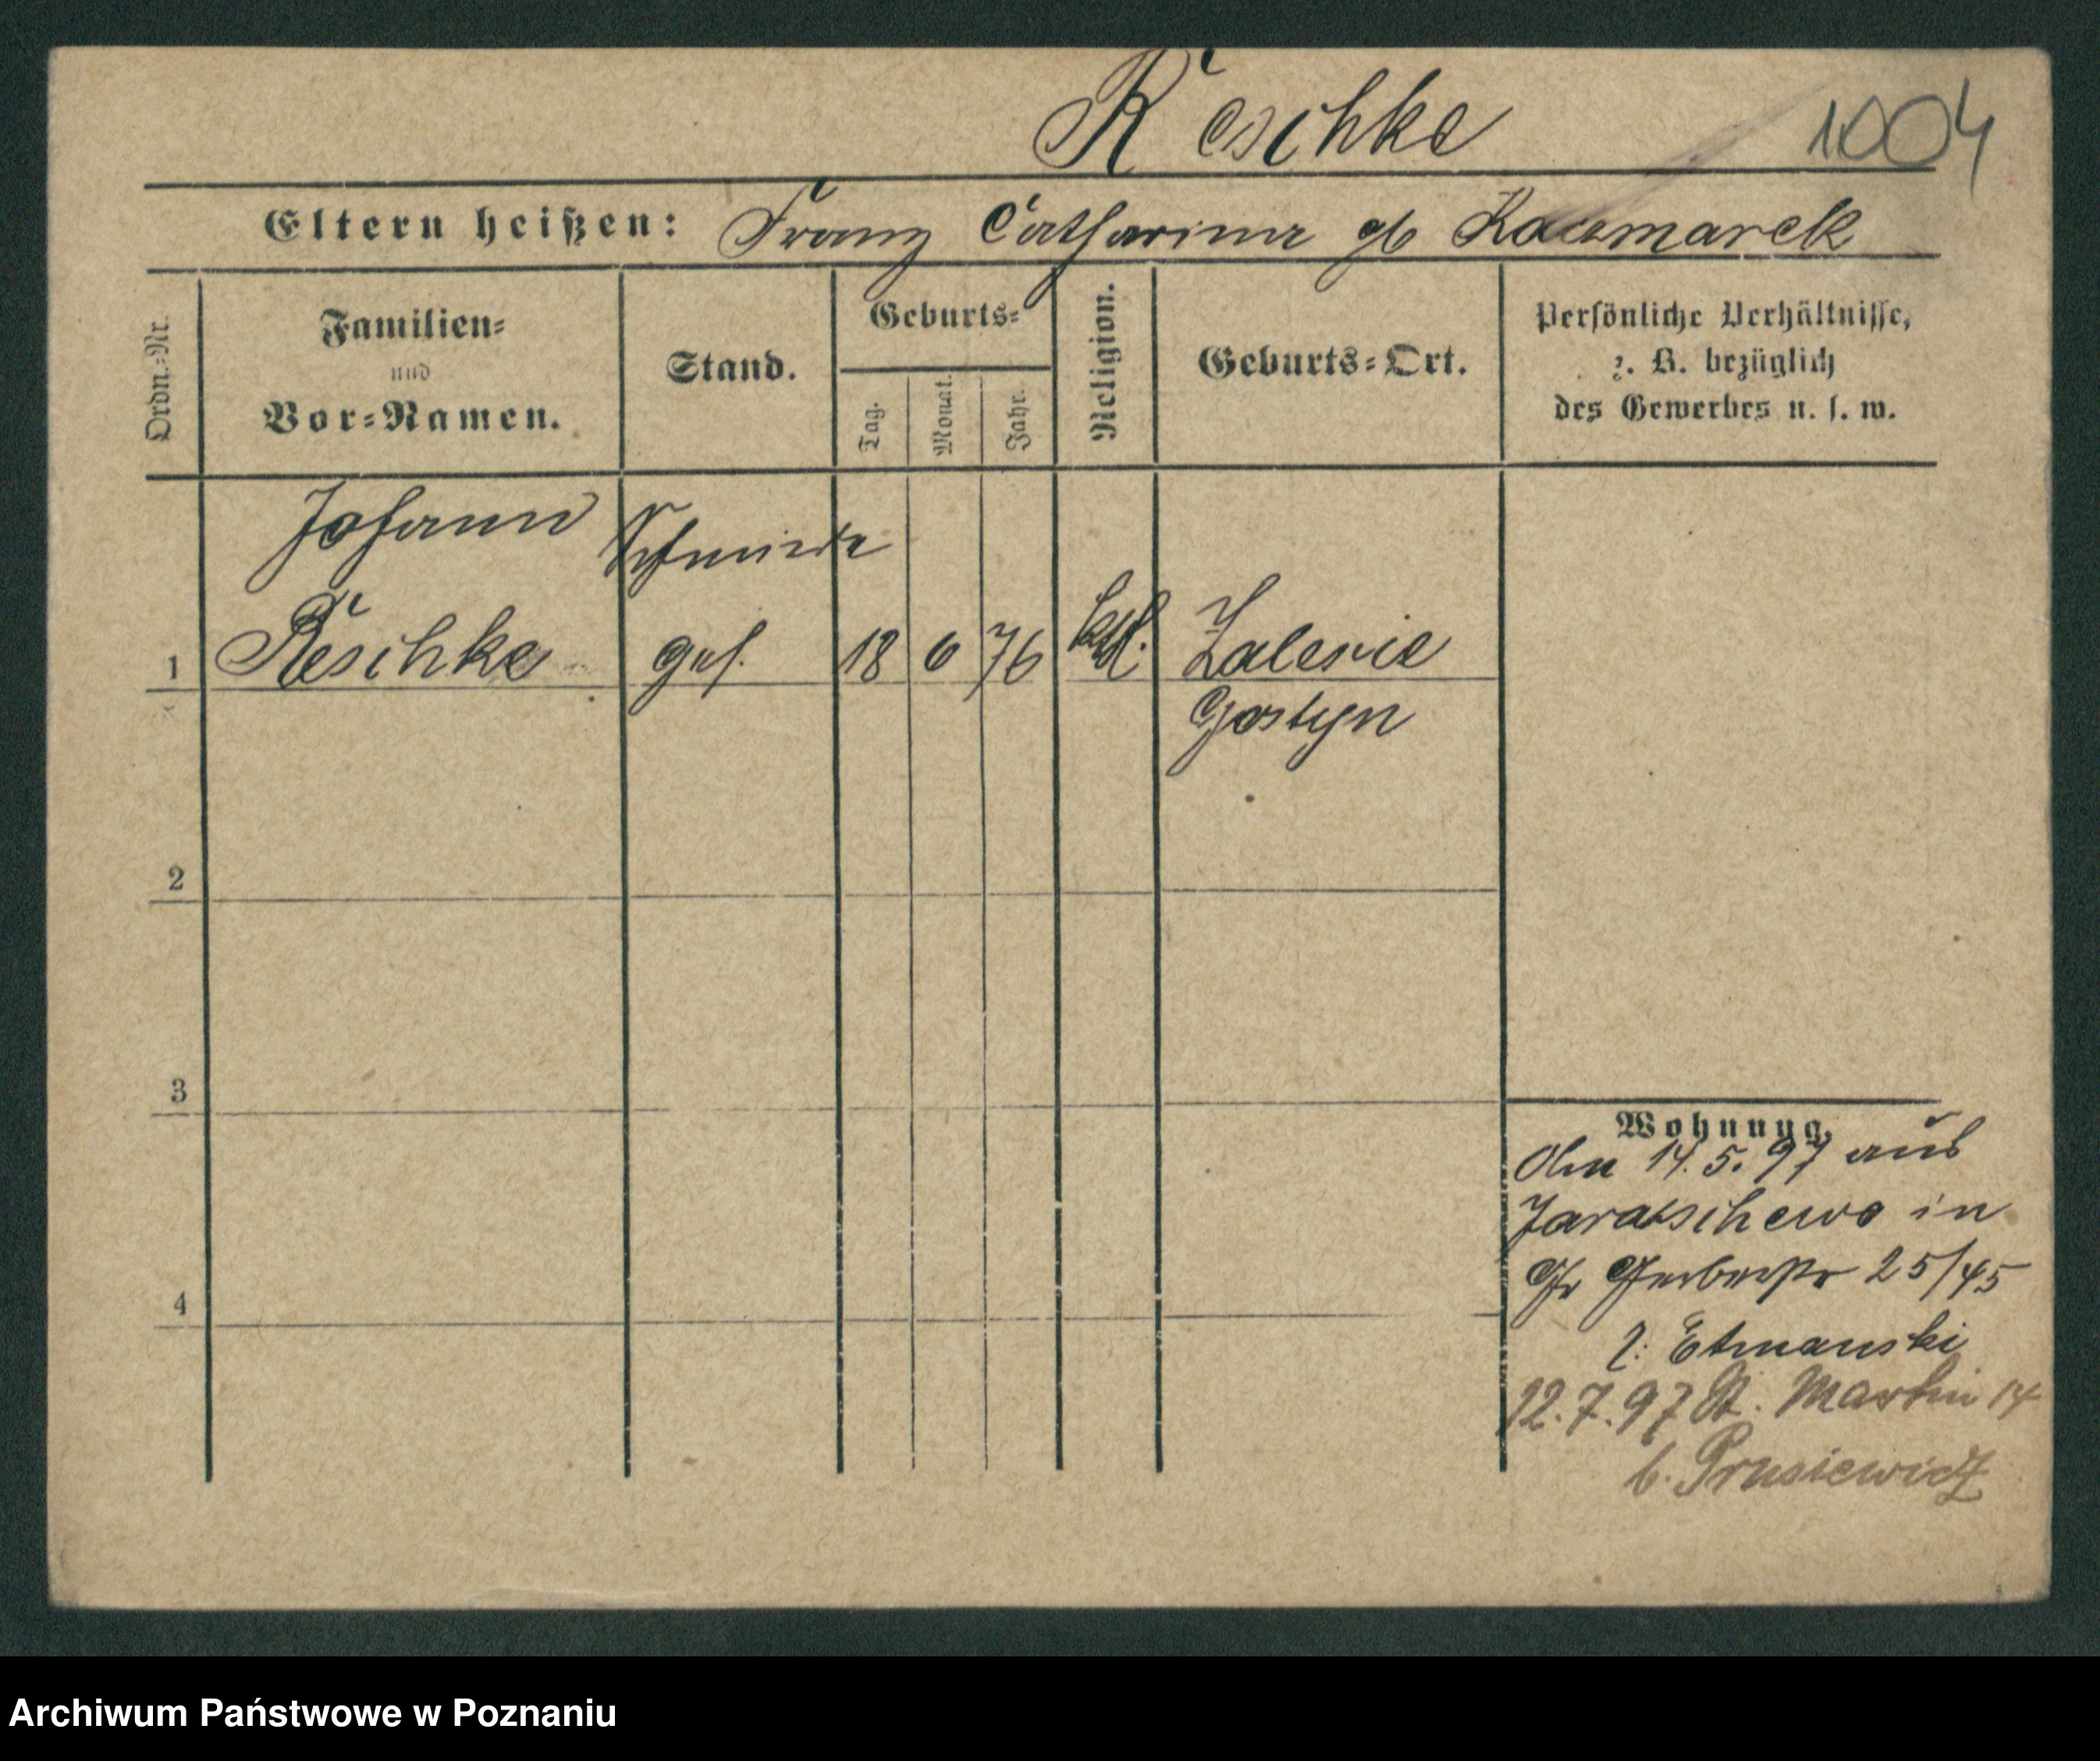 Reschke 1004
Eltern heißen: Franz Catharina gb Kaczmarek
Ordn.-Nr.
Familien-
und
Vor-Namen.
Stand.
Geburts-
Tag.
Monat.
Jahr.
Religion.
Geburts-Ort.
Persönliche Verhältnisse,
z. B. bezüglich
des Gewerbes u. s. w.
Johann Schmiede
1 Reschke ges. 18 6 76 kath. Zalesie
Gostyn
2
3
4
Wohnung.
14.5.97 aus
Jaratschewo in
Gr Gerberstr 25/45
b: Etmanski
12.7.97 St. Martin 14
b. Prusiewicz
Archiwum Państwowe w Poznaniu